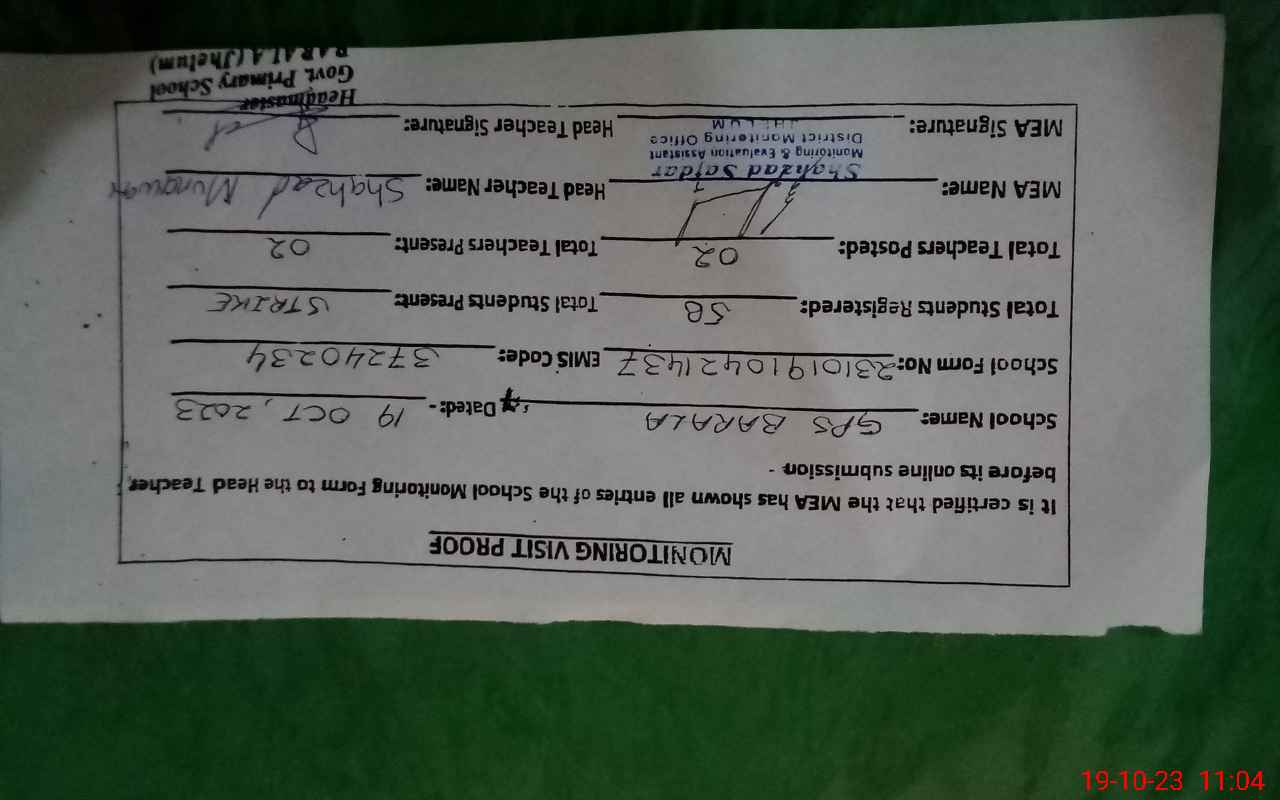 MONITORING VISIT PROOF
It is certified that the MEA has shown all entries of the School Monitoring Form to the Head Teacher,
before its online submission -
School Name: GPS BARALA Dated:- 19 OCT, 2023
School Form No: 23101910421437 EMIS Code: 37240234
Total Students Registered: 58 Total Students Present: STRIKE
Total Teachers Posted: 02 Total Teachers Present: 02
MEA Name: Shahzad Safdar Head Teacher Name: Shahzad
Monitoring & Evaluation Assistant
District Monitoring Office
JHELUM
MEA Signature: Head Teacher Signature:
Headmaster
Govt. Primary School
BARALA (Jhelum)
19-10-23 11:04